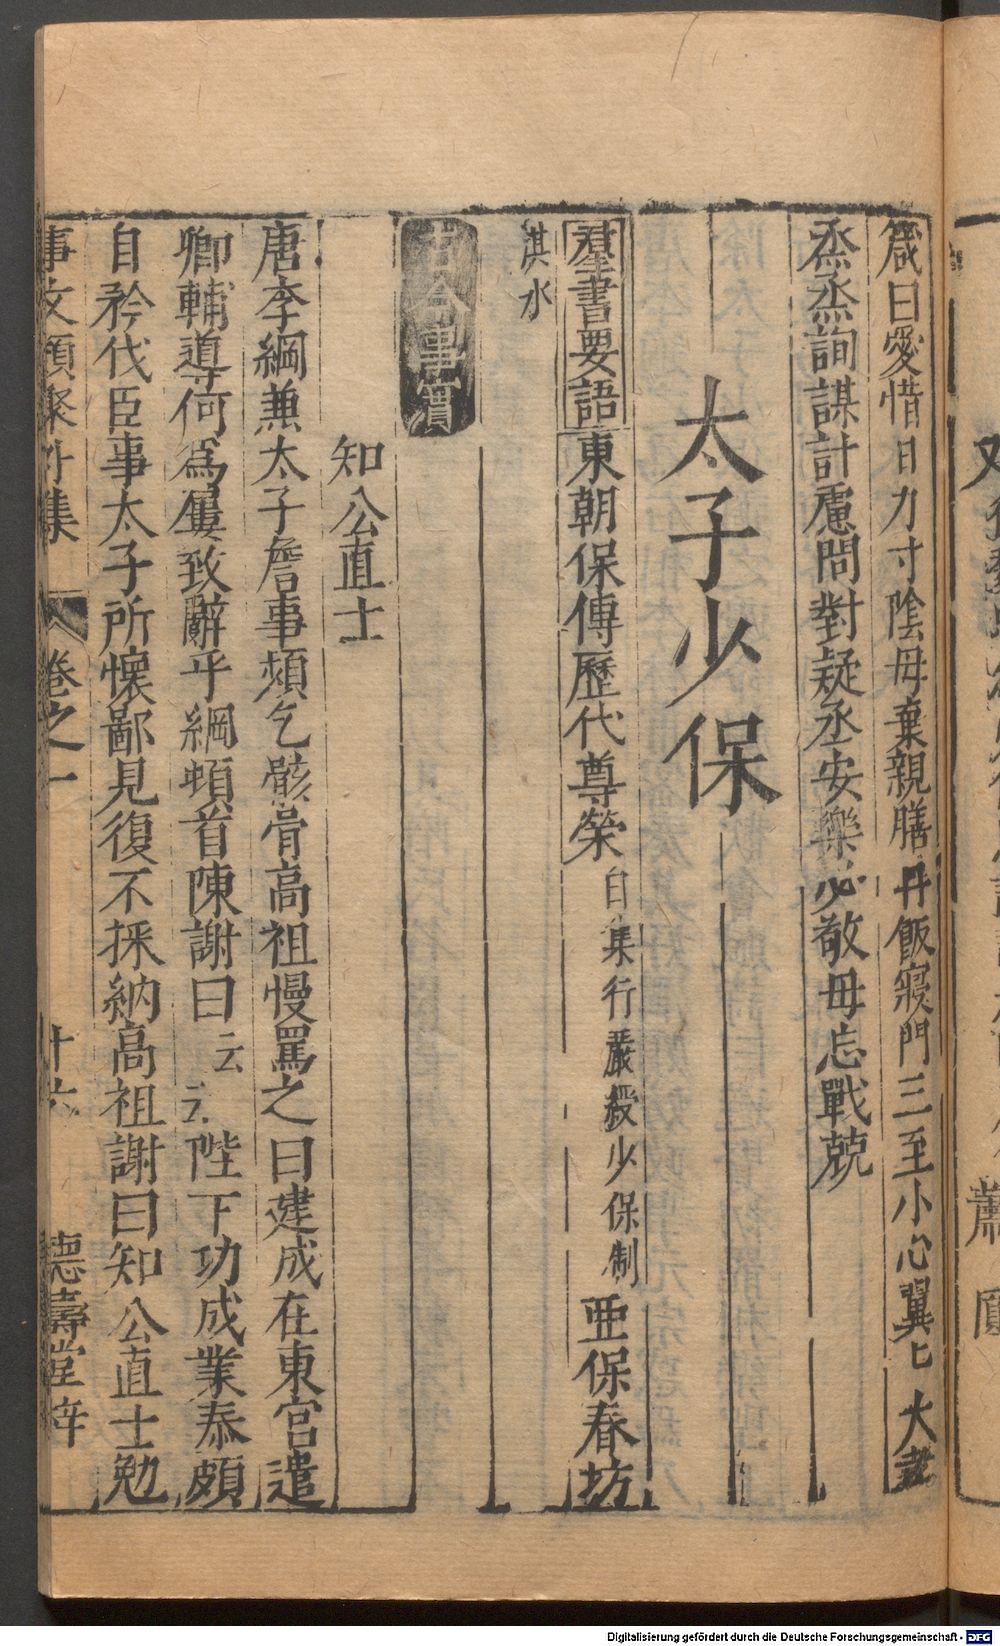 箴曰愛惜日力寸陰毋棄親膳丹飯寢門三至小心翼匕大
烝烝詢謀計慮問對疑丞安樂必敬毋忘戰兢
太子少保
羣書要語東朝保傅歷代尊榮白集行嚴綬少保制亜保春坊
淇水
古今事實
知公直士
唐李綱兼太子詹事頻乞骸骨高祖慢罵之曰建成在東宮遣
卿輔導何爲屢致辭乎綱頓首陳謝曰云云陛下功成業泰頗
自矜伐臣事太子所懷鄙見復不採納高祖謝曰知公直士勉
事文類聚外集 卷之一 十六 德壽堂梓
Digitalisierung gefördert durch die Deutsche Forschungsgemeinschaft - DFG